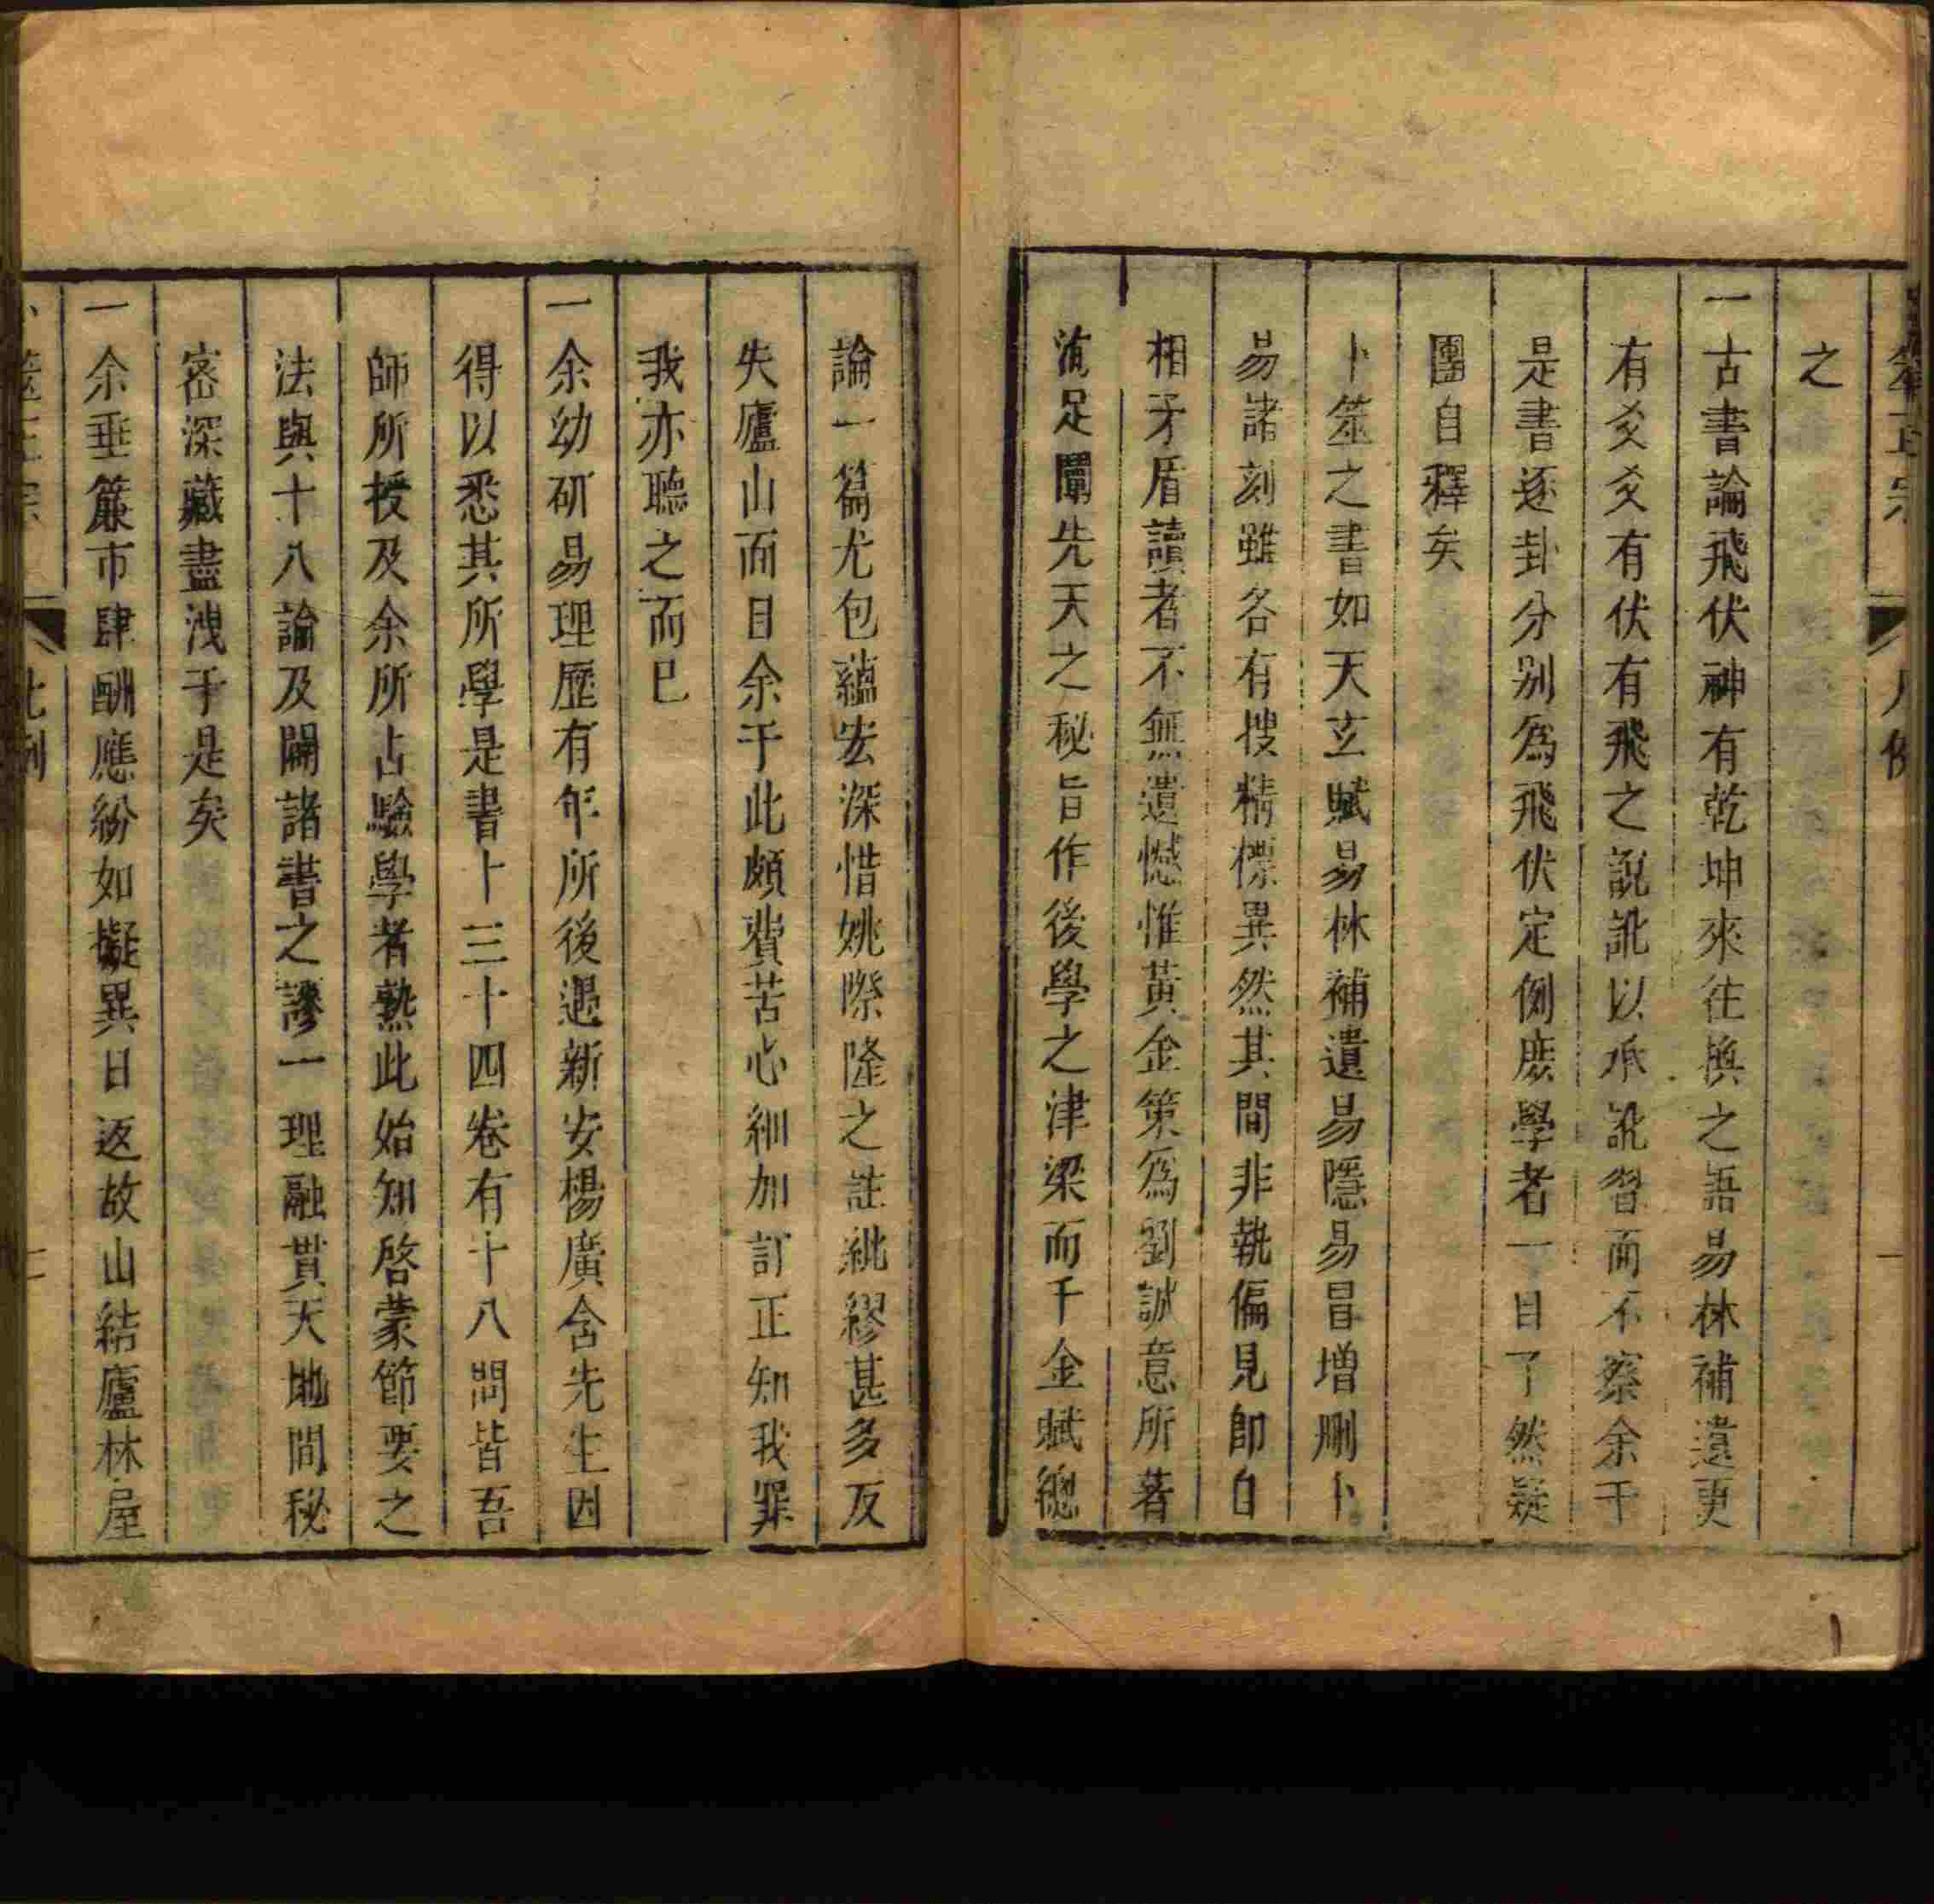 之
一古書論飛伏神有乾坤來往換之語易林補遺更
有爻爻有伏有飛之說訛以承訛習而不察余于
是書逐卦分別為飛伏定例庶學者一目了然疑
團自釋矣
卜筮之書如天玄賦易林補遺易隱易冒增刪卜
易諸刻雖各有搜精標異然其間非執偏見即自
相矛盾讀者不無遺憾惟黃金策為劉誠意所著
洵足闡先天之秘旨作後學之津梁而千金賦總
論一篇尤包蘊宏深惜姚際隆之註紕繆甚多反
失廬山面目余于此頗費苦心細加訂正知我罪
我亦聽之而已
一余幼研易理歷有年所後遇新安楊廣含先生因
得以悉其所學是書卜三十四卷有十八問皆吾
師所授及余所占驗學者熟此始知啓蒙節要之
法與十八論及闢諸書之謬一理融貫天地間秘
密深藏盡洩于是矣
一余垂簾市肆酬應紛如擬異日返故山結廬林屋